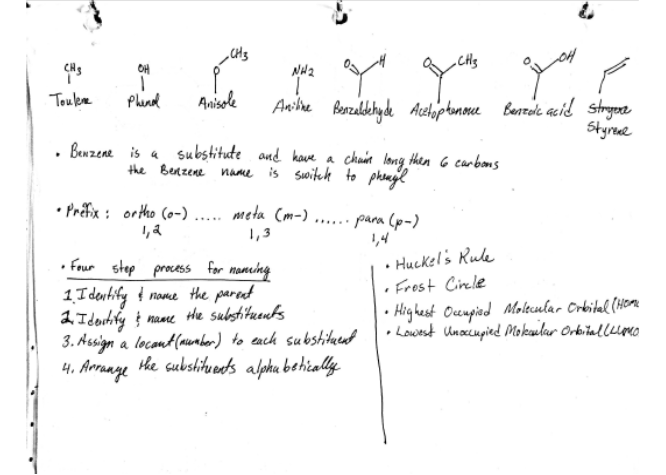 CH3 OH CH3 NH2 O H O CH3 O OH
O
Toulene Phenol Anisole Aniline Benzaldehyde Acetophenone Benzoic acid Styrene
Styrene
• Benzene is a substitute and have a chain long then 6 carbons
the Benzene name is switch to phenyl
• Prefix : ortho (o-) ..... meta (m-) ...... para (p-)
1,2 1,3 1,4
• Four step process for naming
1. Identify & name the parent
2. Identify & name the substituents
3. Assign a locant (number) to each substituent
4. Arrange the substituents alphabetically
• Huckel's Rule
• Frost Circle
• Highest Occupied Molecular Orbital (HOMO
• Lowest Unoccupied Molecular Orbital (LUMO